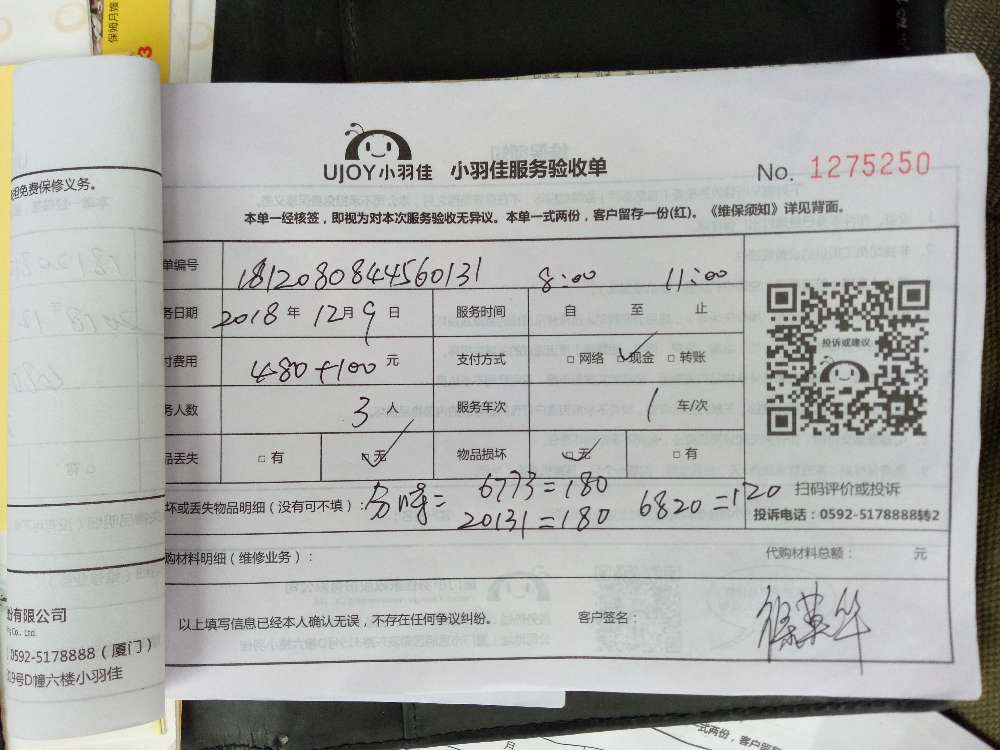 保姆月嫂
3
担免费保修义务。
UJOY小羽佳 小羽佳服务验收单
No. 1275250
本单一经核签，即视为对本次服务验收无异议。本单一式两份，客户留存一份(红)。《维保须知》详见背面。
单编号 1812080844560131
8:00 11:00
务日期 2018年12月9日 服务时间 自 至 止
付费用 480+100元 支付方式 □网络 □现金 □转账
务人数 3人 服务车次 1车/次
品丢失 □有 □无 物品损坏 □无 □有
投诉或建议
坏或丢失物品明细（没有可不填）：分时= 6773=180 6820=120
20131=180
扫码评价或投诉
投诉电话：0592-5178888转2
购材料明细（维修业务）： 代购材料总额： 元
以上填写信息已经本人确认无误，不存在任何争议纠纷。 客户签名：
份有限公司
Co. Ltd.
: 0592-5178888（厦门）
19号D幢六楼小羽佳
式两份，客户留存
月